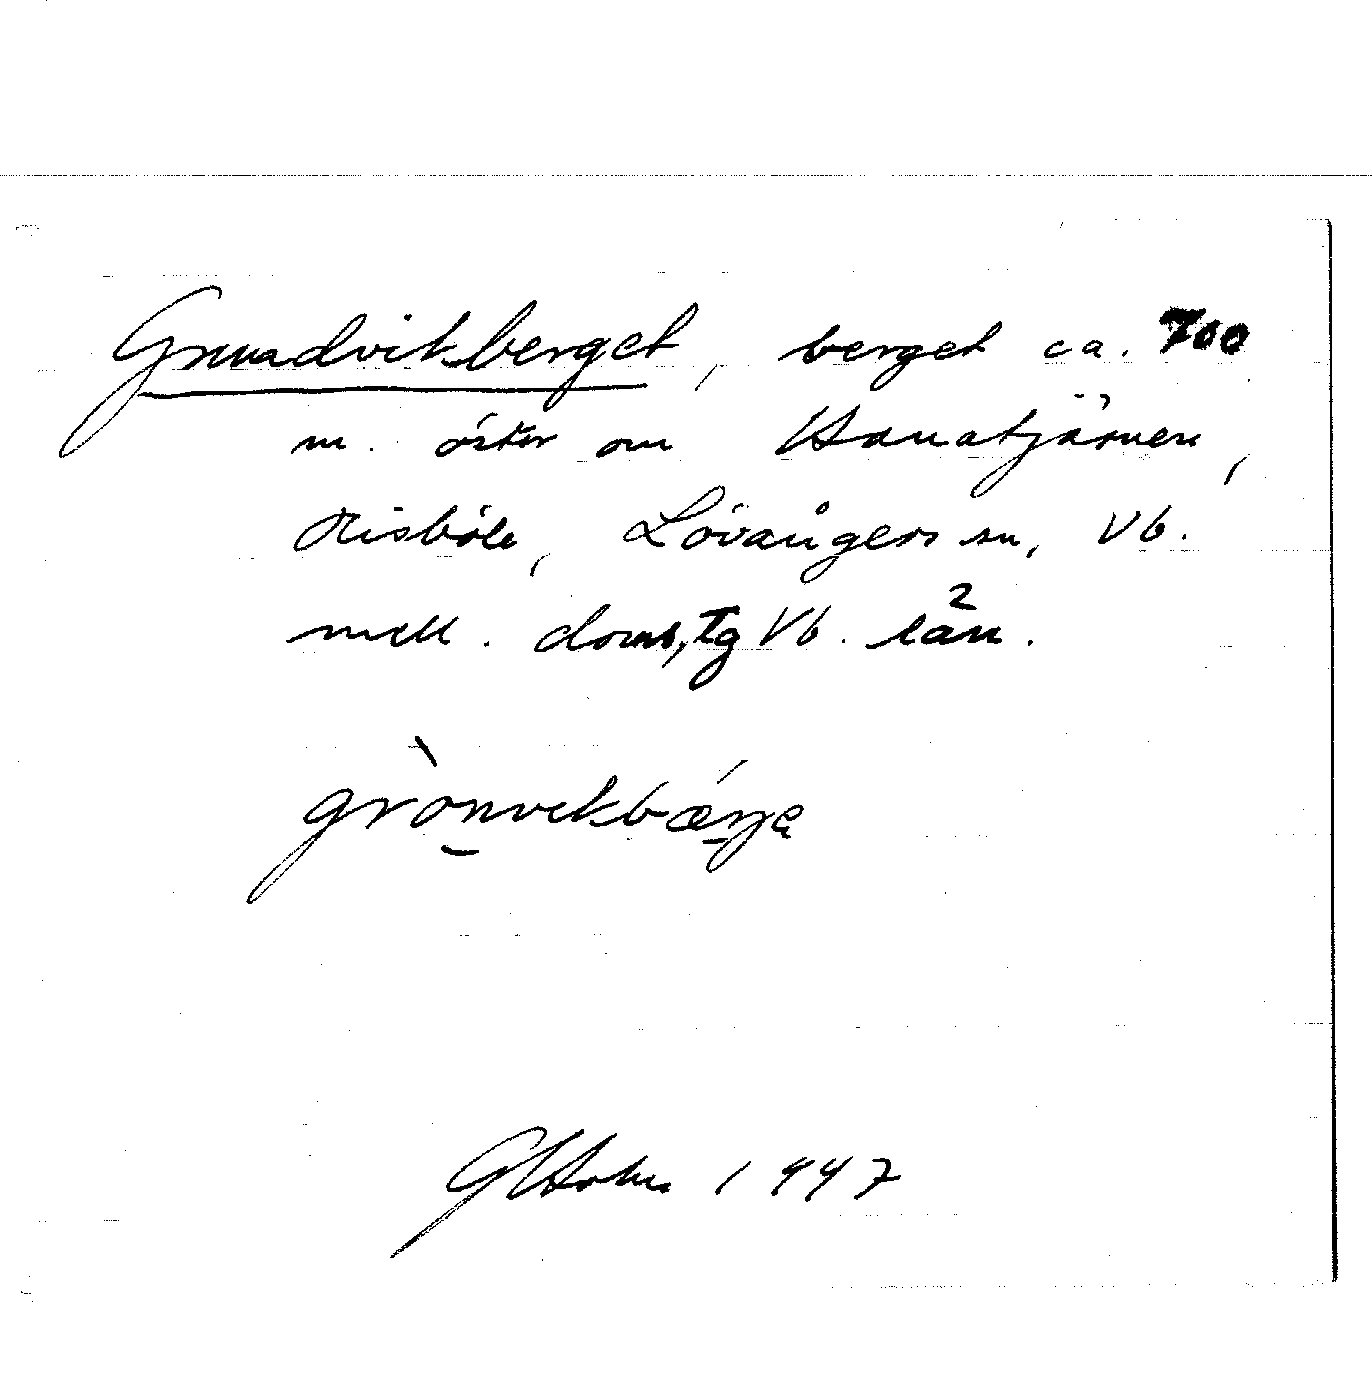 Grundvikberget, berget ca. 700
m. öster om Hanatjärnen,
Risböle, Lövångers sn, Vb.
mell. doms, Tg Vb. län. 2
grònvekbǽrje
GHolm 1947